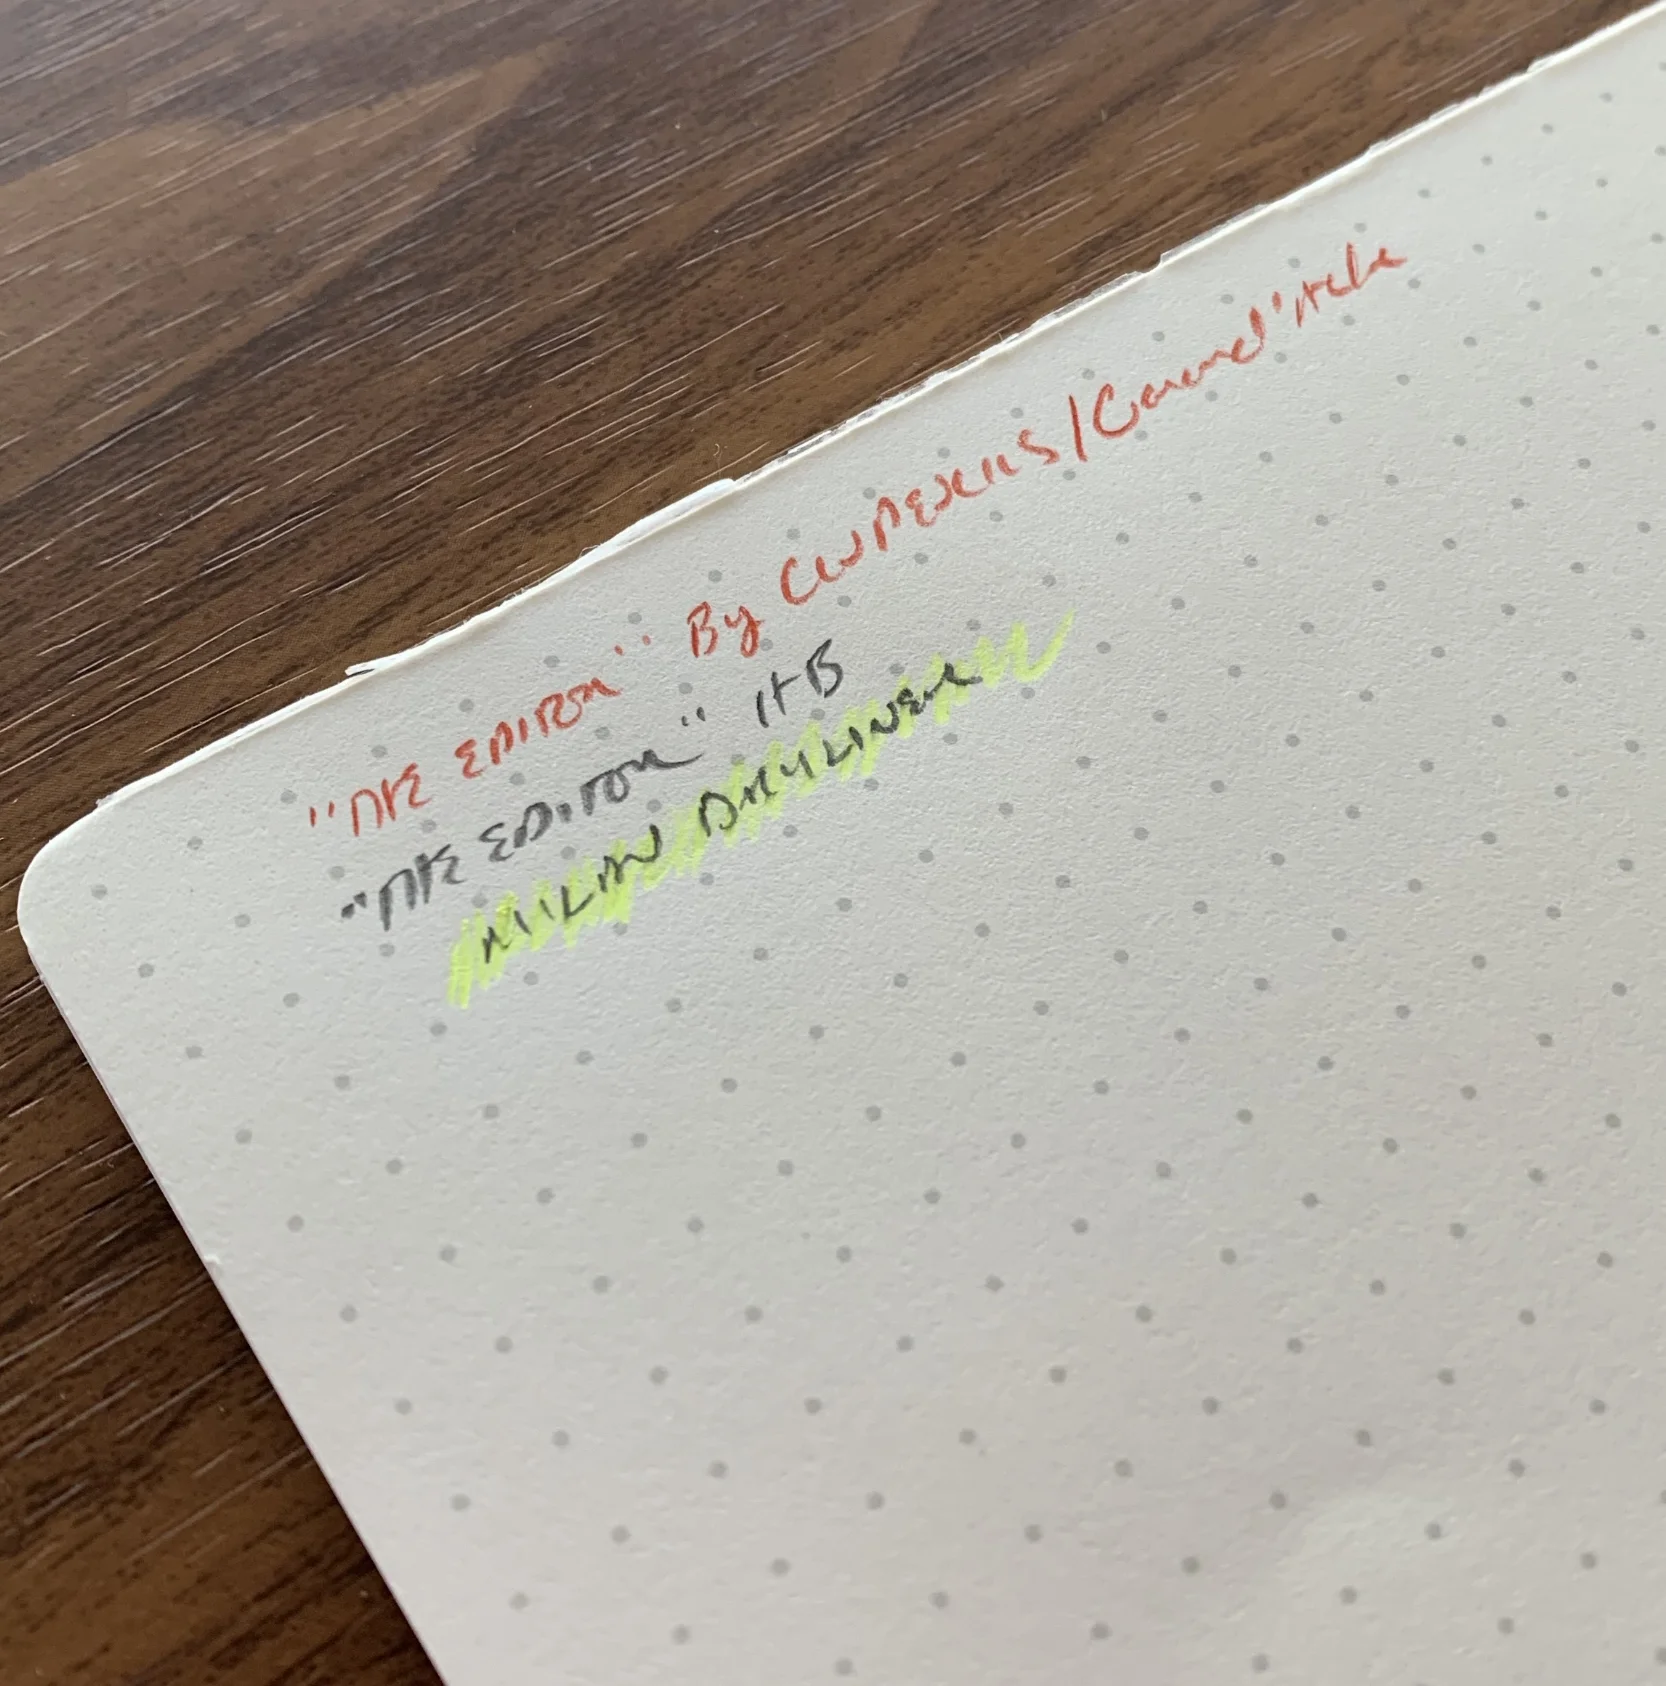 "THE EDITOR" By CWPENCILS/Caran d'Ache
"THE EDITOR" HB
MILAN DRYLINER